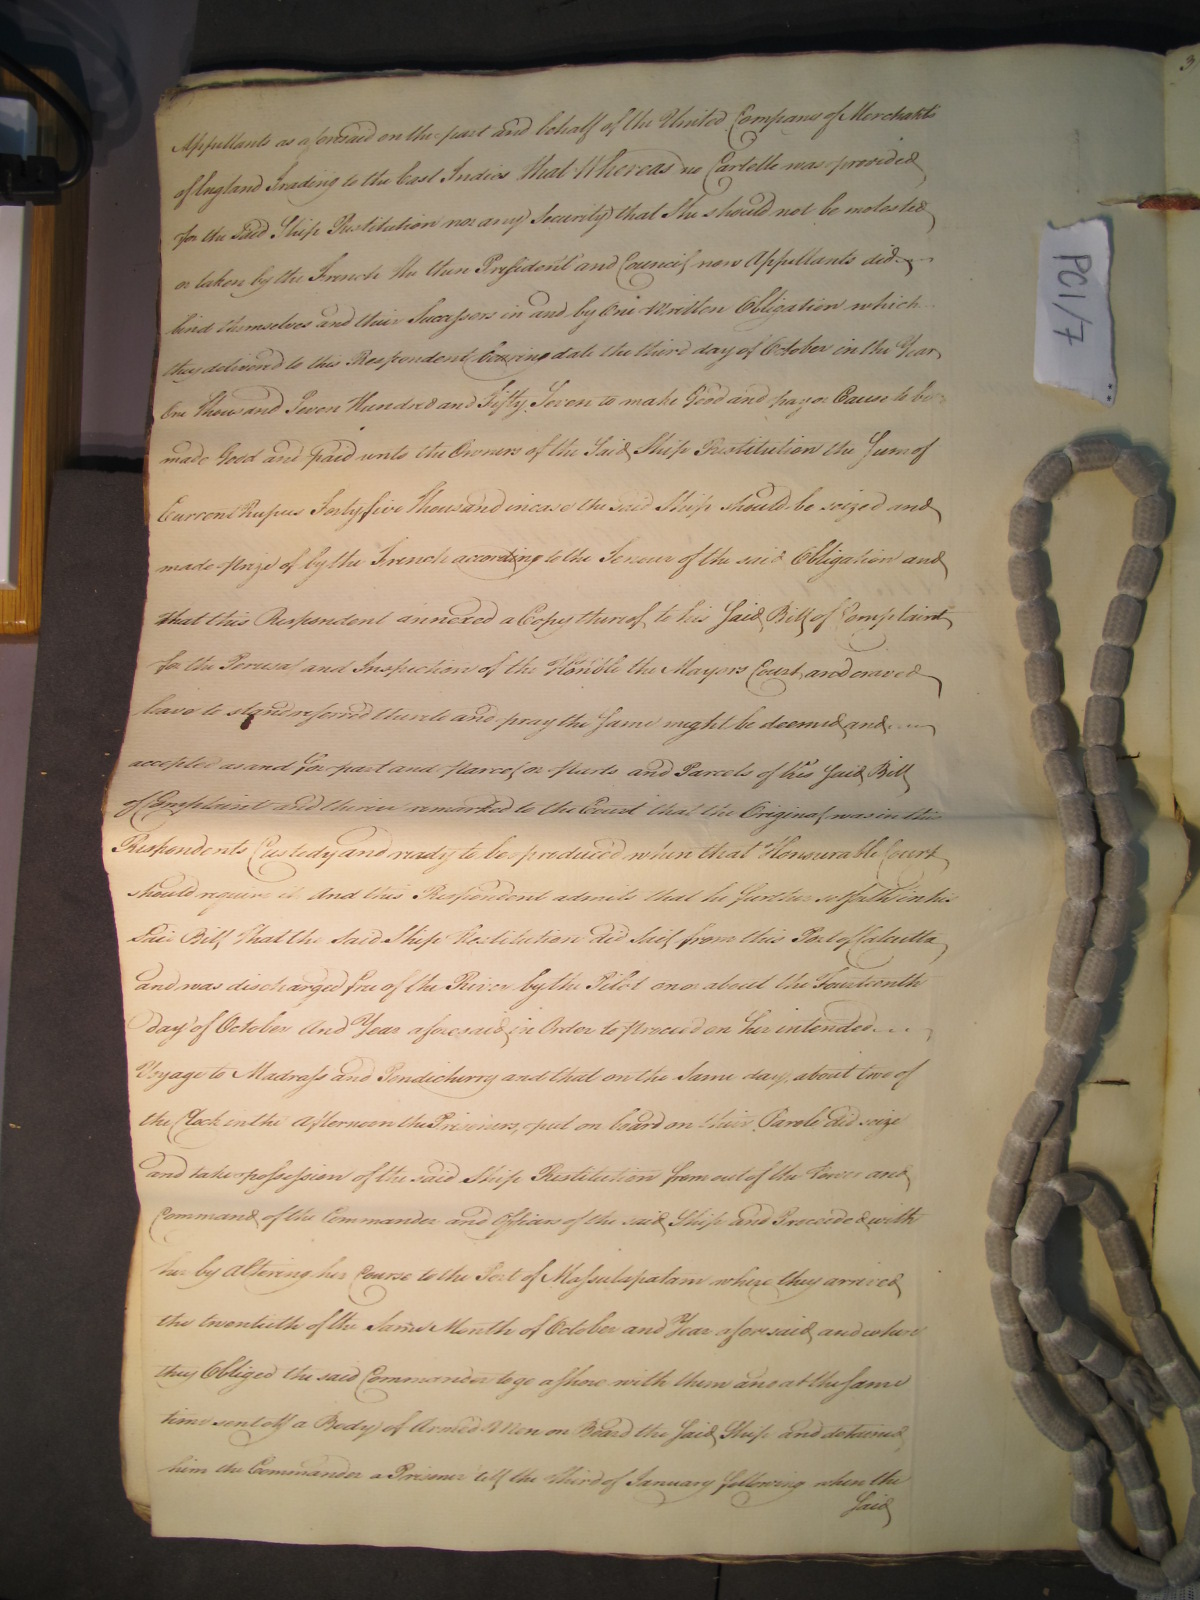 Appellants as aforesaid on the part and behalf of the United Company of Merchants
of England Trading to the East Indies that Whereas no Cartelle was provided
for the said Ship Restitution nor any Security that She should not be molested
or taken by the French the then President and Council now Appellants did
bind themselves and their Successors in and by One Written Obligation which
they delivered to this Respondent bearing date the third day of October in the Year
One thousand Seven Hundred and Fifty Seven to make Good and pay or Cause to be
made Good and paid unto the Owners of the Said Ship Restitution the Sum of
Current Rupees Forty five thousand in case the said Ship should be seized and
made Prize of by the French according to the Tenour of the said Obligation and
that this Respondent annexed a Copy thereof to his Said Bill of Complaint
for the Perusal and Inspection of the Honble the Mayors Court and craved
leave to stand referred thereto and pray the Same might be deemed and
accepted as and for part and Parcel or Parts and Parcels of his Said Bill
of Complaint and therein remarked to the Court that the Original was in this
Respondents Custody and ready to be produced when that Honourable Court
should require it And this Respondent admits that he further setforth in his
Said Bill that the Said Ship Restitution did Sail from this Port of Calcutta
and was discharged free of the River by the Pilot on or about the Fourteenth
day of October And Year aforesaid in Order to proceed on her intended
Voyage to Madrass and Pondicherry and that on the Same day about two of
the Clock in the Afternoon the Prisoners, put on board on their Parole did seize
and take possession of the said Ship Restitution from out of the Power and
Command of the Commander and Officers of the said Ship and Proceeded with
her by altering her Course to the Port of Massulapatam where they arrived
the twentieth of the Same Month of October and Year aforesaid and where
they Obliged the said Commander to go ashore with them and at the same
time sent off a Body of Armed Men on Board the Said Ship and detained
him the Commander a Prisoner till the third of January following when the
Said
PC1/7
3